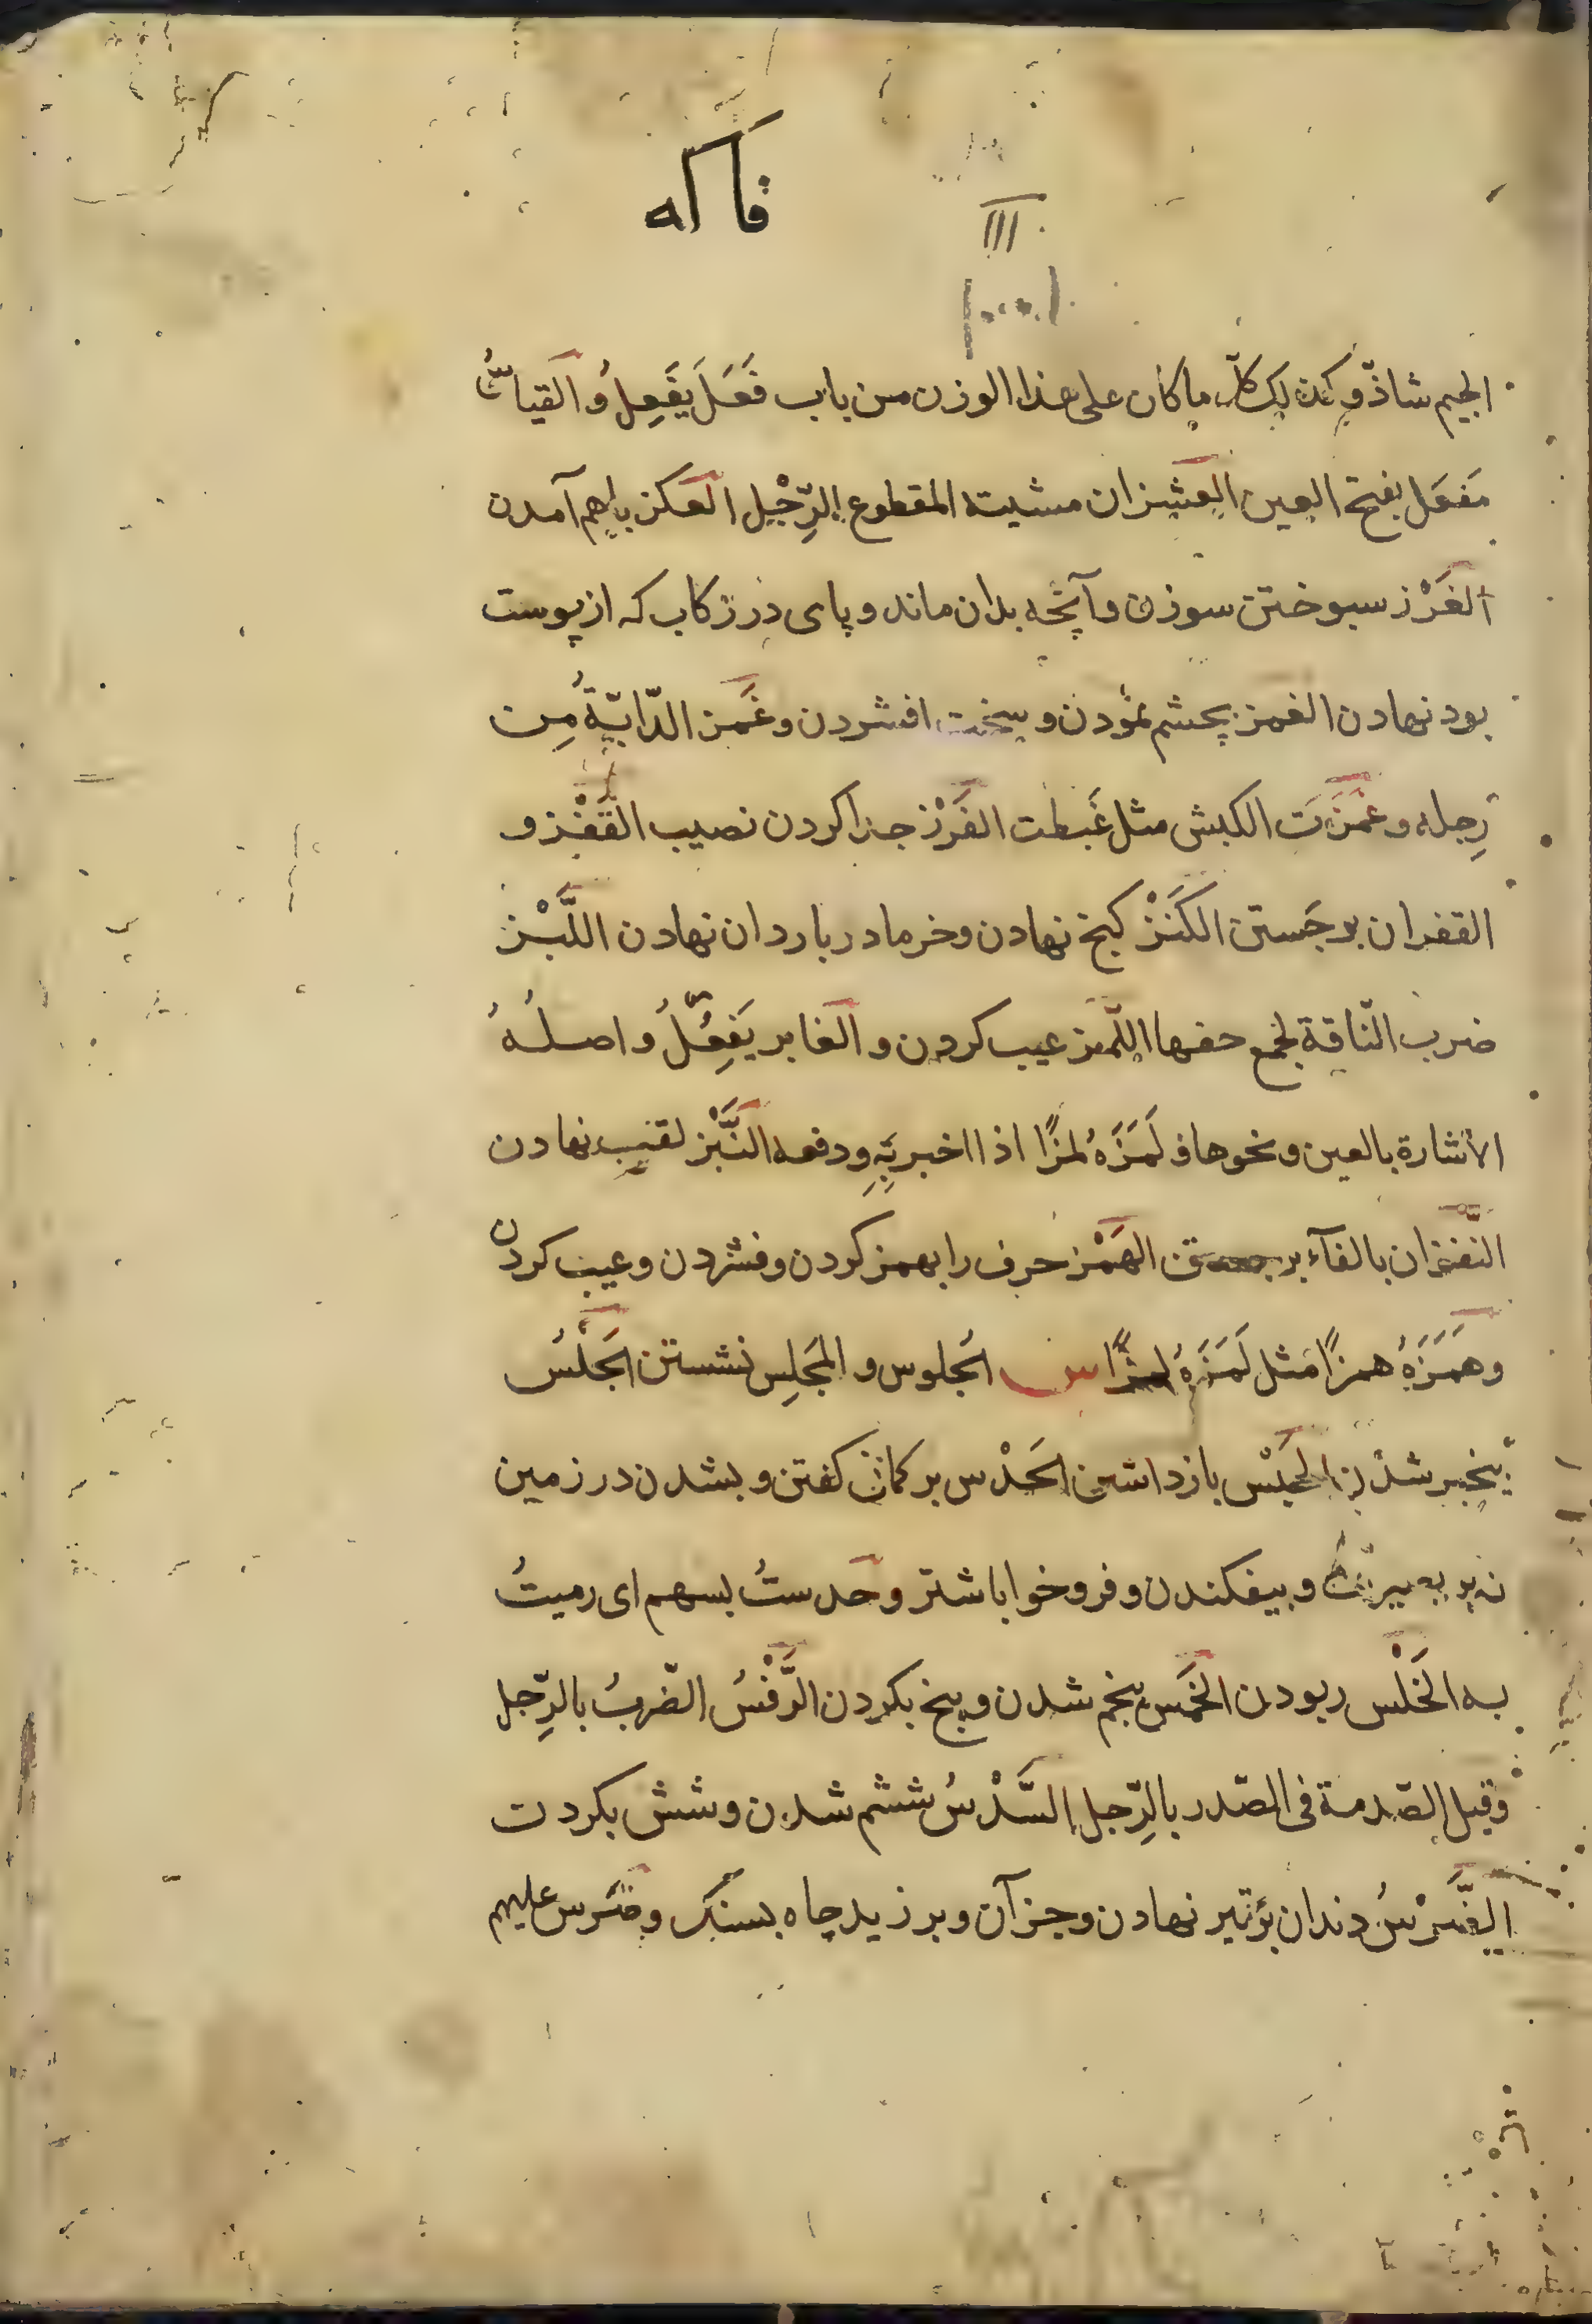 فاكه
III
الجيم شاذّ وكذلك كلّ ما كان على هذا الوزن من باب فَعَلَ يَفْعِلُ وَالقياسُ
مَفعَل بفتح العين العشزان مشيته المقطوع الرِّجْل العكز باهم آمدن
الغَرْز سبوختن سوزن و آنچه بدان ماند و پای در رکاب که از پوست
بود نهادن الغمز بچشم نمودن و بسخت افشردن و غَمَز الدّابّةُ مِن
رِجله و غَمَزَت الكبش مثل غَبطت الفَرْز جدا کردن نصیب القَفْز و
القفزان برجَستن الكَنْز كنج نهادن و خرما در باردان نهادن اللَّبْز
ضرب النّاقة بجمع خفها اللّمز عیب کردن و الغابر يَفعُِلُ و اصلُهُ
الأشارة بالعين و نحوها و لَمَزَهُ لمزًا اذا اخبر بِهِ و دفعه النَّبْز لقب نهادن
النّفزان بالفآء برجستن الهَمْز حرف را بهمز کردن و فشردن و عیب کردن
وهَمَزَهُ همزًا مثل لَمَزَهُ لمزًا س الجُلوس و المَجلِس نشستن الجَلْسُ
بنجبر شدن الحَبْس بازداشتن الحَدْس بر کمان کفتن و بشدن در زمین
نه بر بصیرت و بیفکندن و فروخوابا شتر و حدستُ بسهم ای رمیتُ
به الخَلْس ربودن الخَمْس پنجم شدن و پنج بکردن الرَّفْسُ الضّربُ بالرِّجل
وقيل الصّدمة فى الصّدر بالرِّجل السَّدْسُ ششم شدن و شش بکردن
الضَّرْسُ دندان بر تیر نهادن و جز آن و برزید چاه بسنک و ضَرَس عليهم